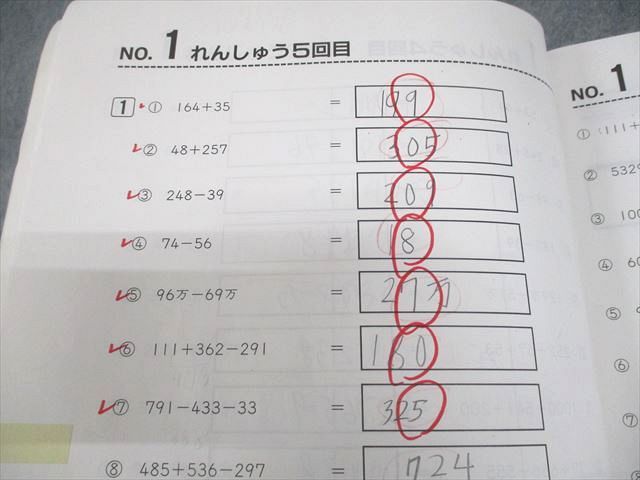 NO. 1 れんしゅう5回目
1 ① 164+35 = 199
② 48+257 = 305
③ 248-39 = 209
④ 74-56 = 18
⑤ 96万-69万 = 27万
⑥ 111+362-291 = 180
⑦ 791-433-33 = 325
⑧ 485+536-297 = 724
NO. 1
① 111+
② 5329
③ 100
④ 60
⑤ 9
⑥
⑦